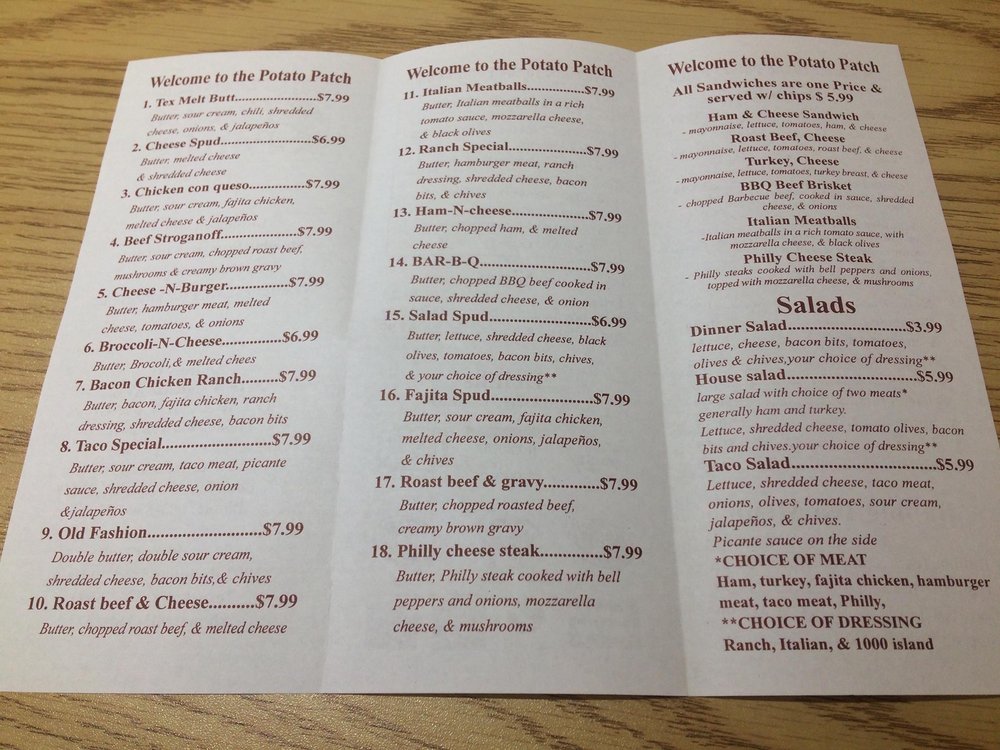 Welcome to the Potato Patch
1. Tex Melt Butt........................$7.99
Butter, sour cream, chili, shredded
cheese, onions, & jalapeños
2. Cheese Spud.......................$6.99
Butter, melted cheese
& shredded cheese
3. Chicken con queso...............$7.99
Butter, sour cream, fajita chicken,
melted cheese & jalapeños
4. Beef Stroganoff...................$7.99
Butter, sour cream, chopped roast beef,
mushrooms & creamy brown gravy
5. Cheese -N-Burger...............$7.99
Butter, hamburger meat, melted
cheese, tomatoes, & onions
6. Broccoli-N-Cheese..............$6.99
Butter, Brocoli,& melted chees
7. Bacon Chicken Ranch.........$7.99
Butter, bacon, fajita chicken, ranch
dressing, shredded cheese, bacon bits
8. Taco Special..........................$7.99
Butter, sour cream, taco meat, picante
sauce, shredded cheese, onion
&jalapeños
9. Old Fashion..........................$7.99
Double butter, double sour cream,
shredded cheese, bacon bits,& chives
10. Roast beef & Cheese...........$7.99
Butter, chopped roast beef, & melted cheese
Welcome to the Potato Patch
11. Italian Meatballs..............$7.99
Butter, Italian meatballs in a rich
tomato sauce, mozzarella cheese,
& black olives
12. Ranch Special...................$7.99
Butter, hamburger meat, ranch
dressing, shredded cheese, bacon
bits, & chives
13. Ham-N-cheese...................$7.99
Butter, chopped ham, & melted
cheese
14. BAR-B-Q..........................$7.99
Butter, chopped BBQ beef cooked in
sauce, shredded cheese, & onion
15. Salad Spud........................$6.99
Butter, lettuce, shredded cheese, black
olives, tomatoes, bacon bits, chives,
& your choice of dressing**
16. Fajita Spud........................$7.99
Butter, sour cream, fajita chicken,
melted cheese, onions, jalapeños,
& chives
17. Roast beef & gravy............$7.99
Butter, chopped roasted beef,
creamy brown gravy
18. Philly cheese steak.............$7.99
Butter, Philly steak cooked with bell
peppers and onions, mozzarella
cheese, & mushrooms
Welcome to the Potato Patch
All Sandwiches are one Price &
served w/ chips $ 5.99
Ham & Cheese Sandwich
- mayonnaise, lettuce, tomatoes, ham, & cheese
Roast Beef, Cheese
- mayonnaise, lettuce, tomatoes, roast beef, & cheese
Turkey, Cheese
- mayonnaise, lettuce, tomatoes, turkey breast, & cheese
BBQ Beef Brisket
- chopped Barbecue beef, cooked in sauce, shredded
cheese, & onions
Italian Meatballs
-Italian meatballs in a rich tomato sauce, with
mozzarella cheese, & black olives
Philly Cheese Steak
- Philly steaks cooked with bell peppers and onions,
topped with mozzarella cheese, & mushrooms
Salads
Dinner Salad..........................$3.99
lettuce, cheese, bacon bits, tomatoes,
olives & chives,your choice of dressing**
House salad............................$5.99
large salad with choice of two meats*
generally ham and turkey.
Lettuce, shredded cheese, tomato olives, bacon
bits and chives.your choice of dressing**
Taco Salad................................$5.99
Lettuce, shredded cheese, taco meat,
onions, olives, tomatoes, sour cream,
jalapeños, & chives.
Picante sauce on the side
*CHOICE OF MEAT
Ham, turkey, fajita chicken, hamburger
meat, taco meat, Philly,
**CHOICE OF DRESSING
Ranch, Italian, & 1000 island